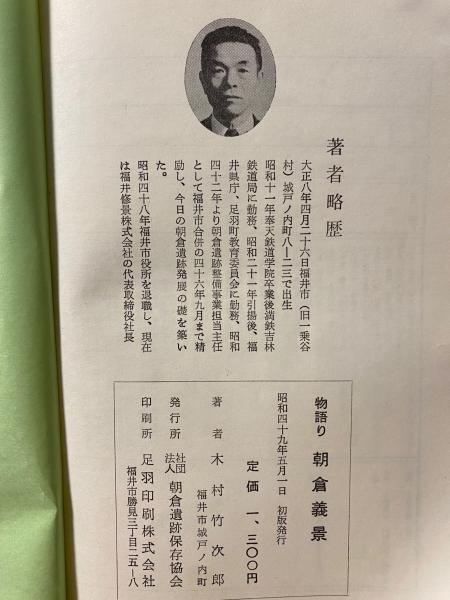 著者略歴
大正八年四月二十六日福井市（旧一乗谷
村）城戸ノ内町八ー二三で出生
昭和十一年奉天鉄道学院卒業後満鉄吉林
鉄道局に勤務、昭和二十一年引揚後、福
井県庁、足羽町教育委員会に勤務、昭和
四十二年より朝倉遺跡整備事業担当主任
として福井市合併の四十六年九月まで精
励し、今日の朝倉遺跡発展の礎を築い
た。
昭和四十八年福井市役所を退職し、現在
は福井修景株式会社の代表取締役社長
物語り 朝倉義景
昭和四十九年五月一日 初版発行
定価 一、三〇〇円
著者 木村竹次郎
福井市城戸ノ内町
発行所 社団法人 朝倉遺跡保存協会
印刷所 足羽印刷株式会社
福井市勝見三丁目二五ー八